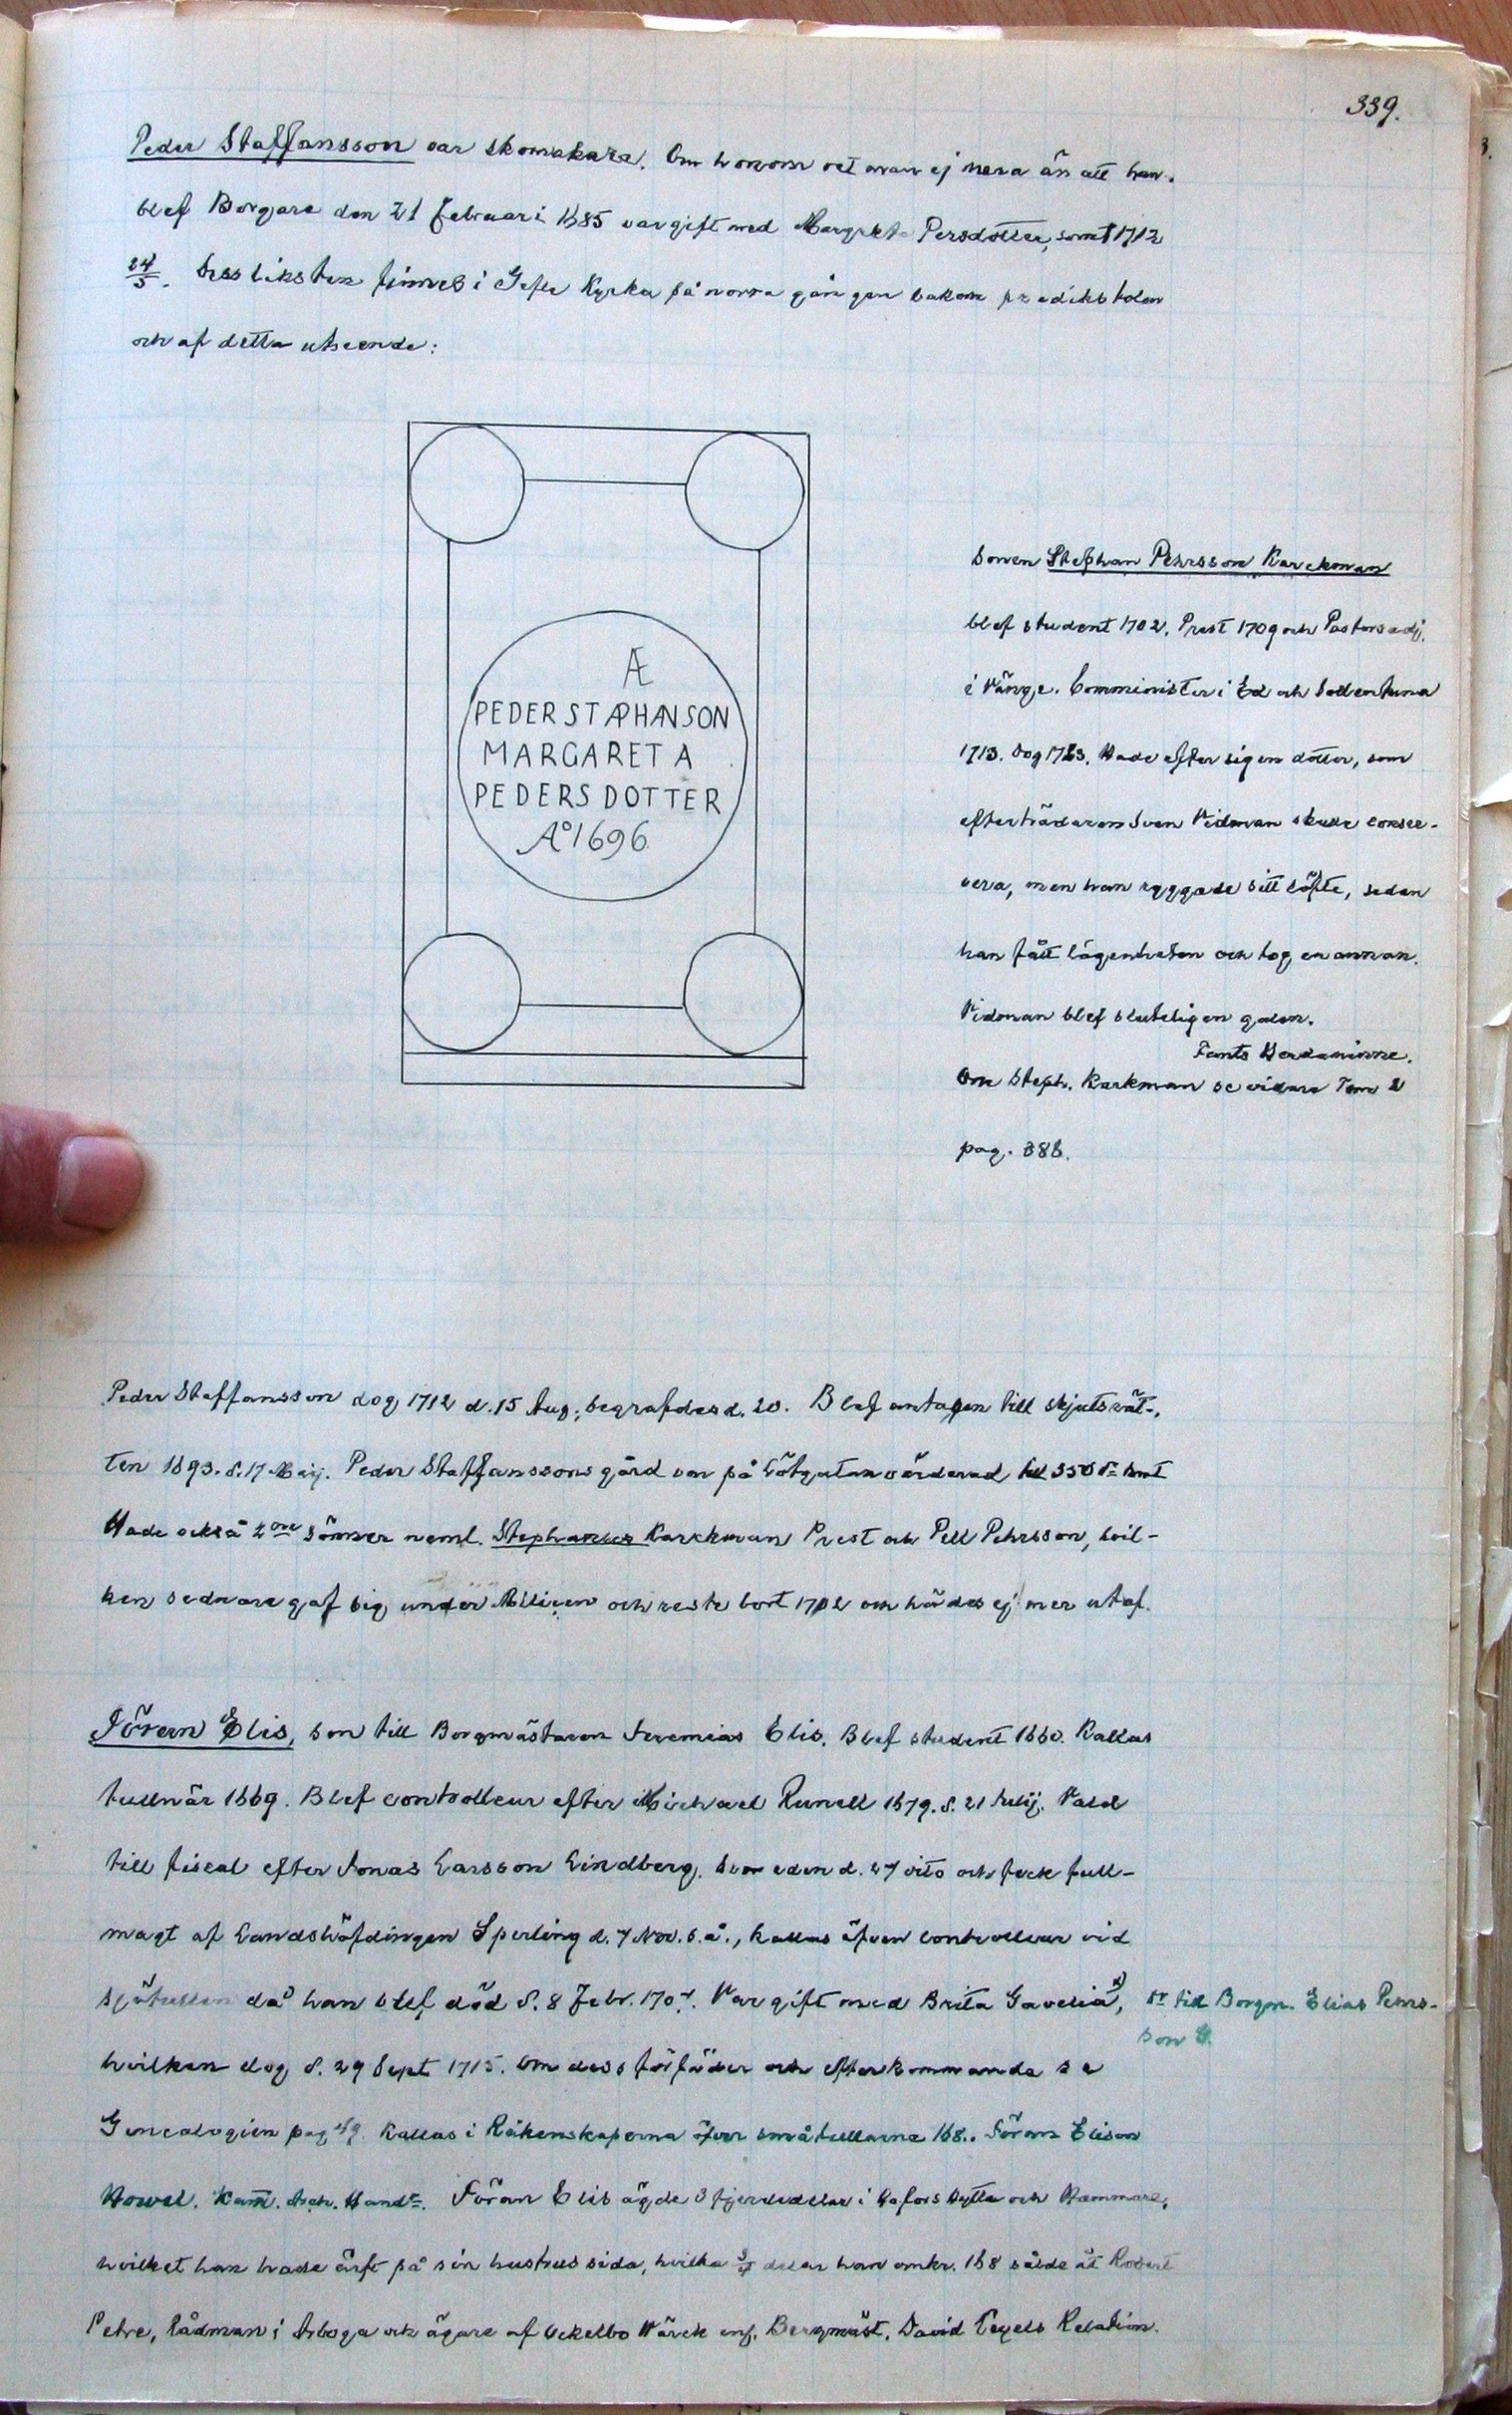 339.
Peder Staffansson var skomakare. Om honom vet man ej mera än att han
blef Borgare den 21 februari 1685 var gift med Margreta Persdotter, som † 1712
24/5. Dess liksten finnes i Gefle Kyrka på norra gången bakom predikstolen
och af detta utseende:
Æ
PEDER STÆPHANSON
MARGARETA
PEDERSDOTTER
Aº 1696
Sonen Stephan Pehrsson Karckman
blef student 1702, Prest 1709 och Pastorsadj.
i Vänge. Comminister i Ed och Sollentuna
1713. Dog 1723. Hade efter sig en dotter, som
efterträdaren Sven Vidman skulle conser-
vera, men han ryggade sitt löfte, sedan
han fått lägenheten och tog en annan.
Vidman blef sluteligen galen.
Fants Herdaminne.
Om Steph. Karkman se vidare Tom 2
pag. 388.
Peder Staffansson dog 1712 d. 15 Aug., begrafdes d. 20. Blef antagen till skjutsrät-
ten 1693. d. 17 Maij. Peder Staffanssons gård var på Götgatan värderad till 350 Dr kmt
Hade också 2ne Sönner neml. Stephanus Karckman Prest och Pell Pehrsson, hvil-
ken sednare gaf sig under Milicen och reste bort 1702 och hördes ej mer utaf.
Jören Elis, son till Borgmästaren Jeremias Elis. Blef student 1660. Kallas
tullnär 1669. Blef controlleur efter Michael Runell 1679. d. 21 Julij. Vald
till fiscal efter Jonas Larsson Lindberg. Svor eden d. 27 dito och feck full-
magt af Landshöfdingen Sperling d. 7 Nov. s. å., kallas äfven controlleur vid
sjötullen då han blef död d. 8 Febr. 1707. Var gift med Brita Gavelia x),
Dr till Borgm. Elias Pehrs-
son G.
hvilken dog d. 29 Sept 1715. Om dess förfäder och efterkommande se
Genealogien pag 49. Kallas i Räkenskaperna öfver småtullarna 168.. Jöran Elison
Howel. Kam. Arch. Handr. Jöran Elis ägde 3 fjerdedelar i Hofors Hytta och Hammare,
hvilket han hade ärft på sin hustrus sida, hvilka 3/4 delar han omkr. 168 sålde åt Robert
Petre, Rådman i Arboga och ägare af Ockelbo Wärck enl. Bergmäst. David Tegels Relation.